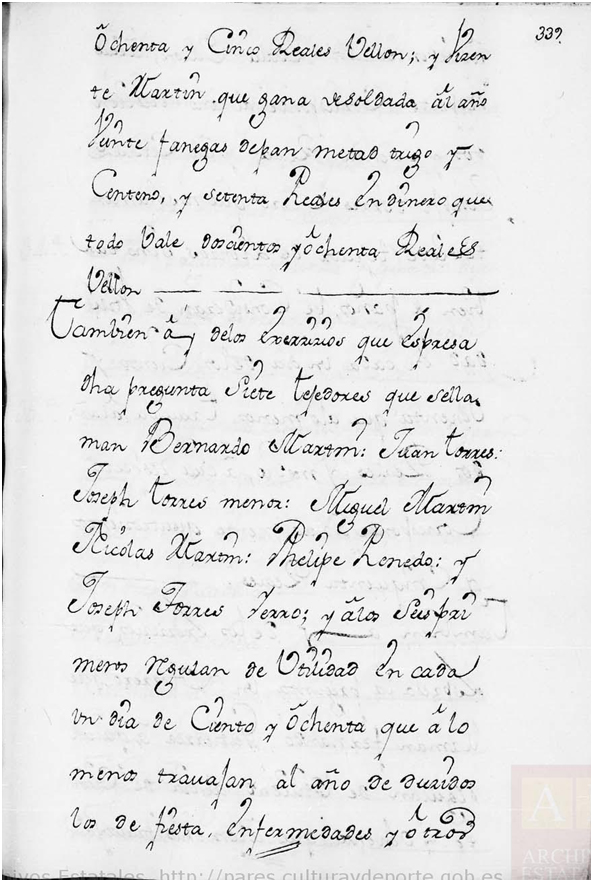 339.
Ochenta y Cinco Reales Vellon; y Vizen
te Martin que gana de soldada al año
Veinte fanegas de pan metad trigo y
Centeno, y setenta Reales en dinero que
todo Vale doscientos y ochenta Reales
Vellon
Tambien ay delos que espresa
dha pregunta Siete tejedores que sella
man Bernardo Martin: Juan torres:
Joseph torres menor: Miguel Martin
Nicolas Martin: Phelipe Renedo: y
Joseph Torres Zerro; y alos Seis pri
meros regulan de Utilidad en cada
un dia de Ciento y ochenta, que alo
menos travajan al año, deduzidos
los de fiesta, enfermedades y otros
ivos Estatales. http://pares.culturaydeporte.gob.es
A
ARCHI
ESTAT